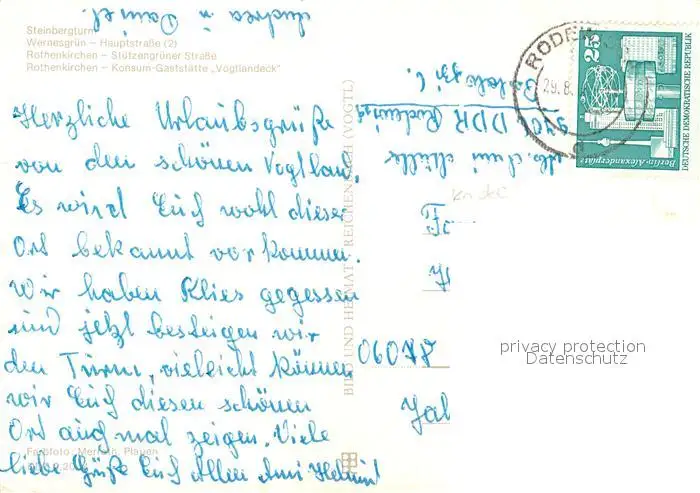 Andrea u. Daniel.
Steinbergturm
Wernesgrün – Hauptstraße (2)
Rothenkirchen – Stützengrüner Straße
Rothenkirchen – Konsum-Gaststätte „Vogtlandeck"
Herzliche Urlaubsgrüße
von dem schönen Vogtland.
Es wird Euch wohl dieser
Ort bekannt vorkommen.
Wir haben Klies gegessen
und jetzt besteigen wir
den Turm, vieleicht können
wir Euch diesen schönen
Ort auch mal zeigen. Viele
liebe Grüße Euch Allen
Helmut
Farbfoto: Plauen
BILD UND HEIMAT REICHENBACH (VOGTL)
RODE
29. 8.
25
Berlin-Alexanderplatz
DEUTSCHE DEMOKRATISCHE REPUBLIK
DDR
privacy protection
Datenschutz